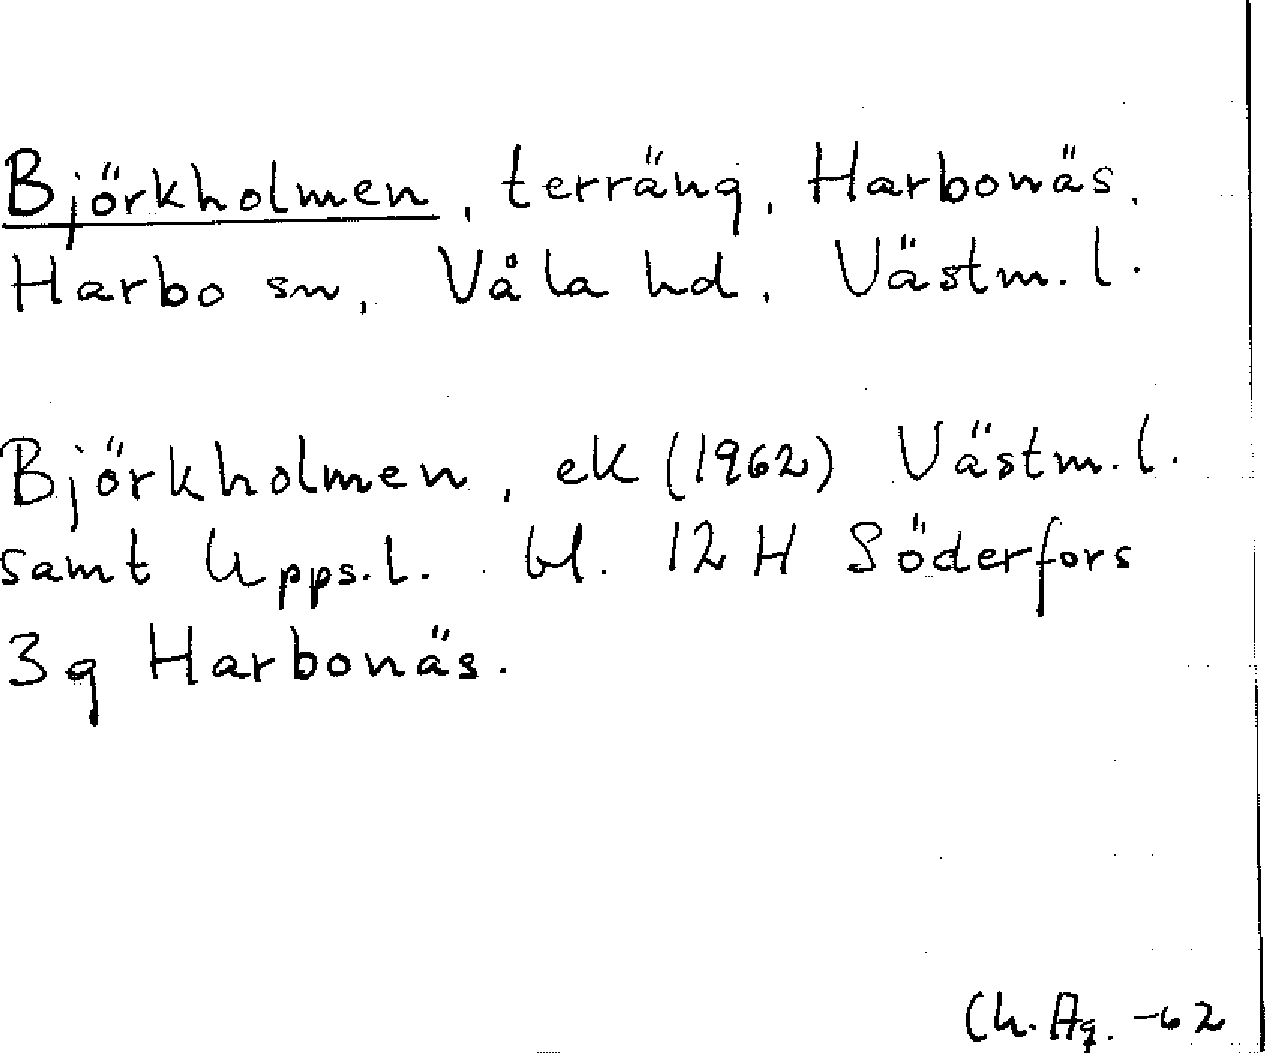 Björkholmen, terräng, Harbonäs,
Harbo sn, Våla hd, Västm. l.
Björkholmen, ek (1962) Västm. l.
samt Upps. l. bl. 12 H Söderfors
3g Harbonäs.
Ch. Ag. -62